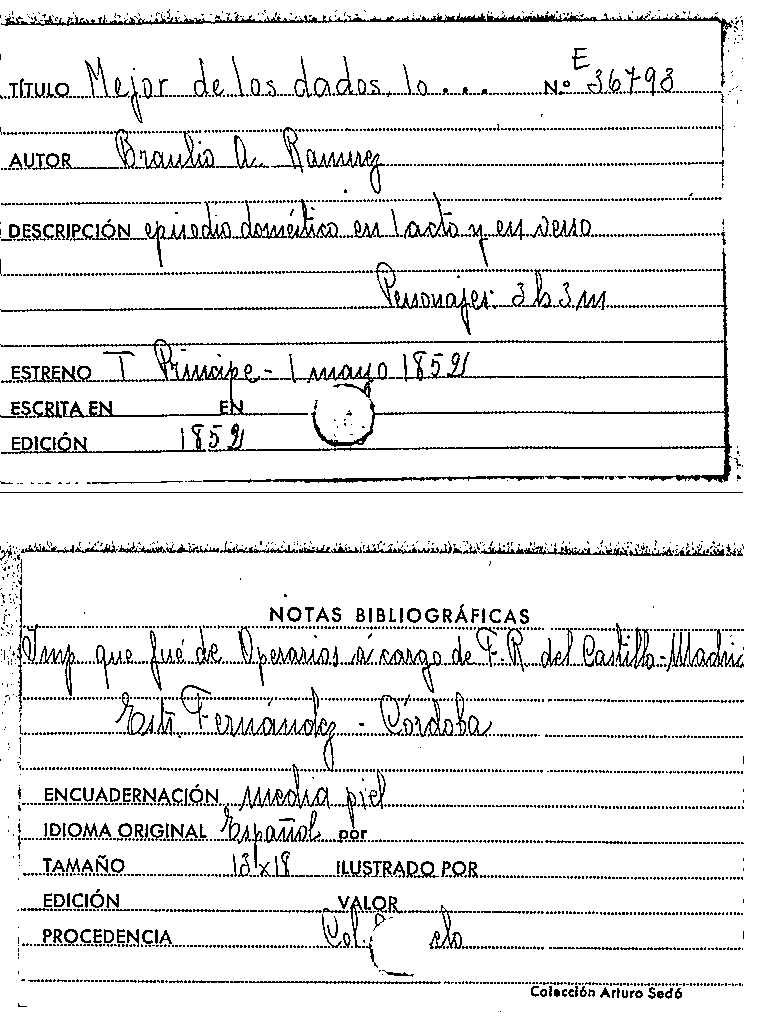 E
TÍTULO Mejor de los dados, lo... N.º 36793
AUTOR Braulio A. Ramirez
DESCRIPCIÓN episodio doméstico en 1 acto y en verso
Personajes: 3 h 3 m
ESTRENO T Principe - 1 mayo 1852
ESCRITA EN EN
EDICIÓN 1852
NOTAS BIBLIOGRÁFICAS
Imp que fué de Operarios a cargo de F. R. del Castillo - Madri
Estr. Fernández - Córdoba
ENCUADERNACIÓN media piel
IDIOMA ORIGINAL Español por
TAMAÑO ILUSTRADO POR
EDICIÓN VALOR
PROCEDENCIA Col.
Colección Arturo Sedó